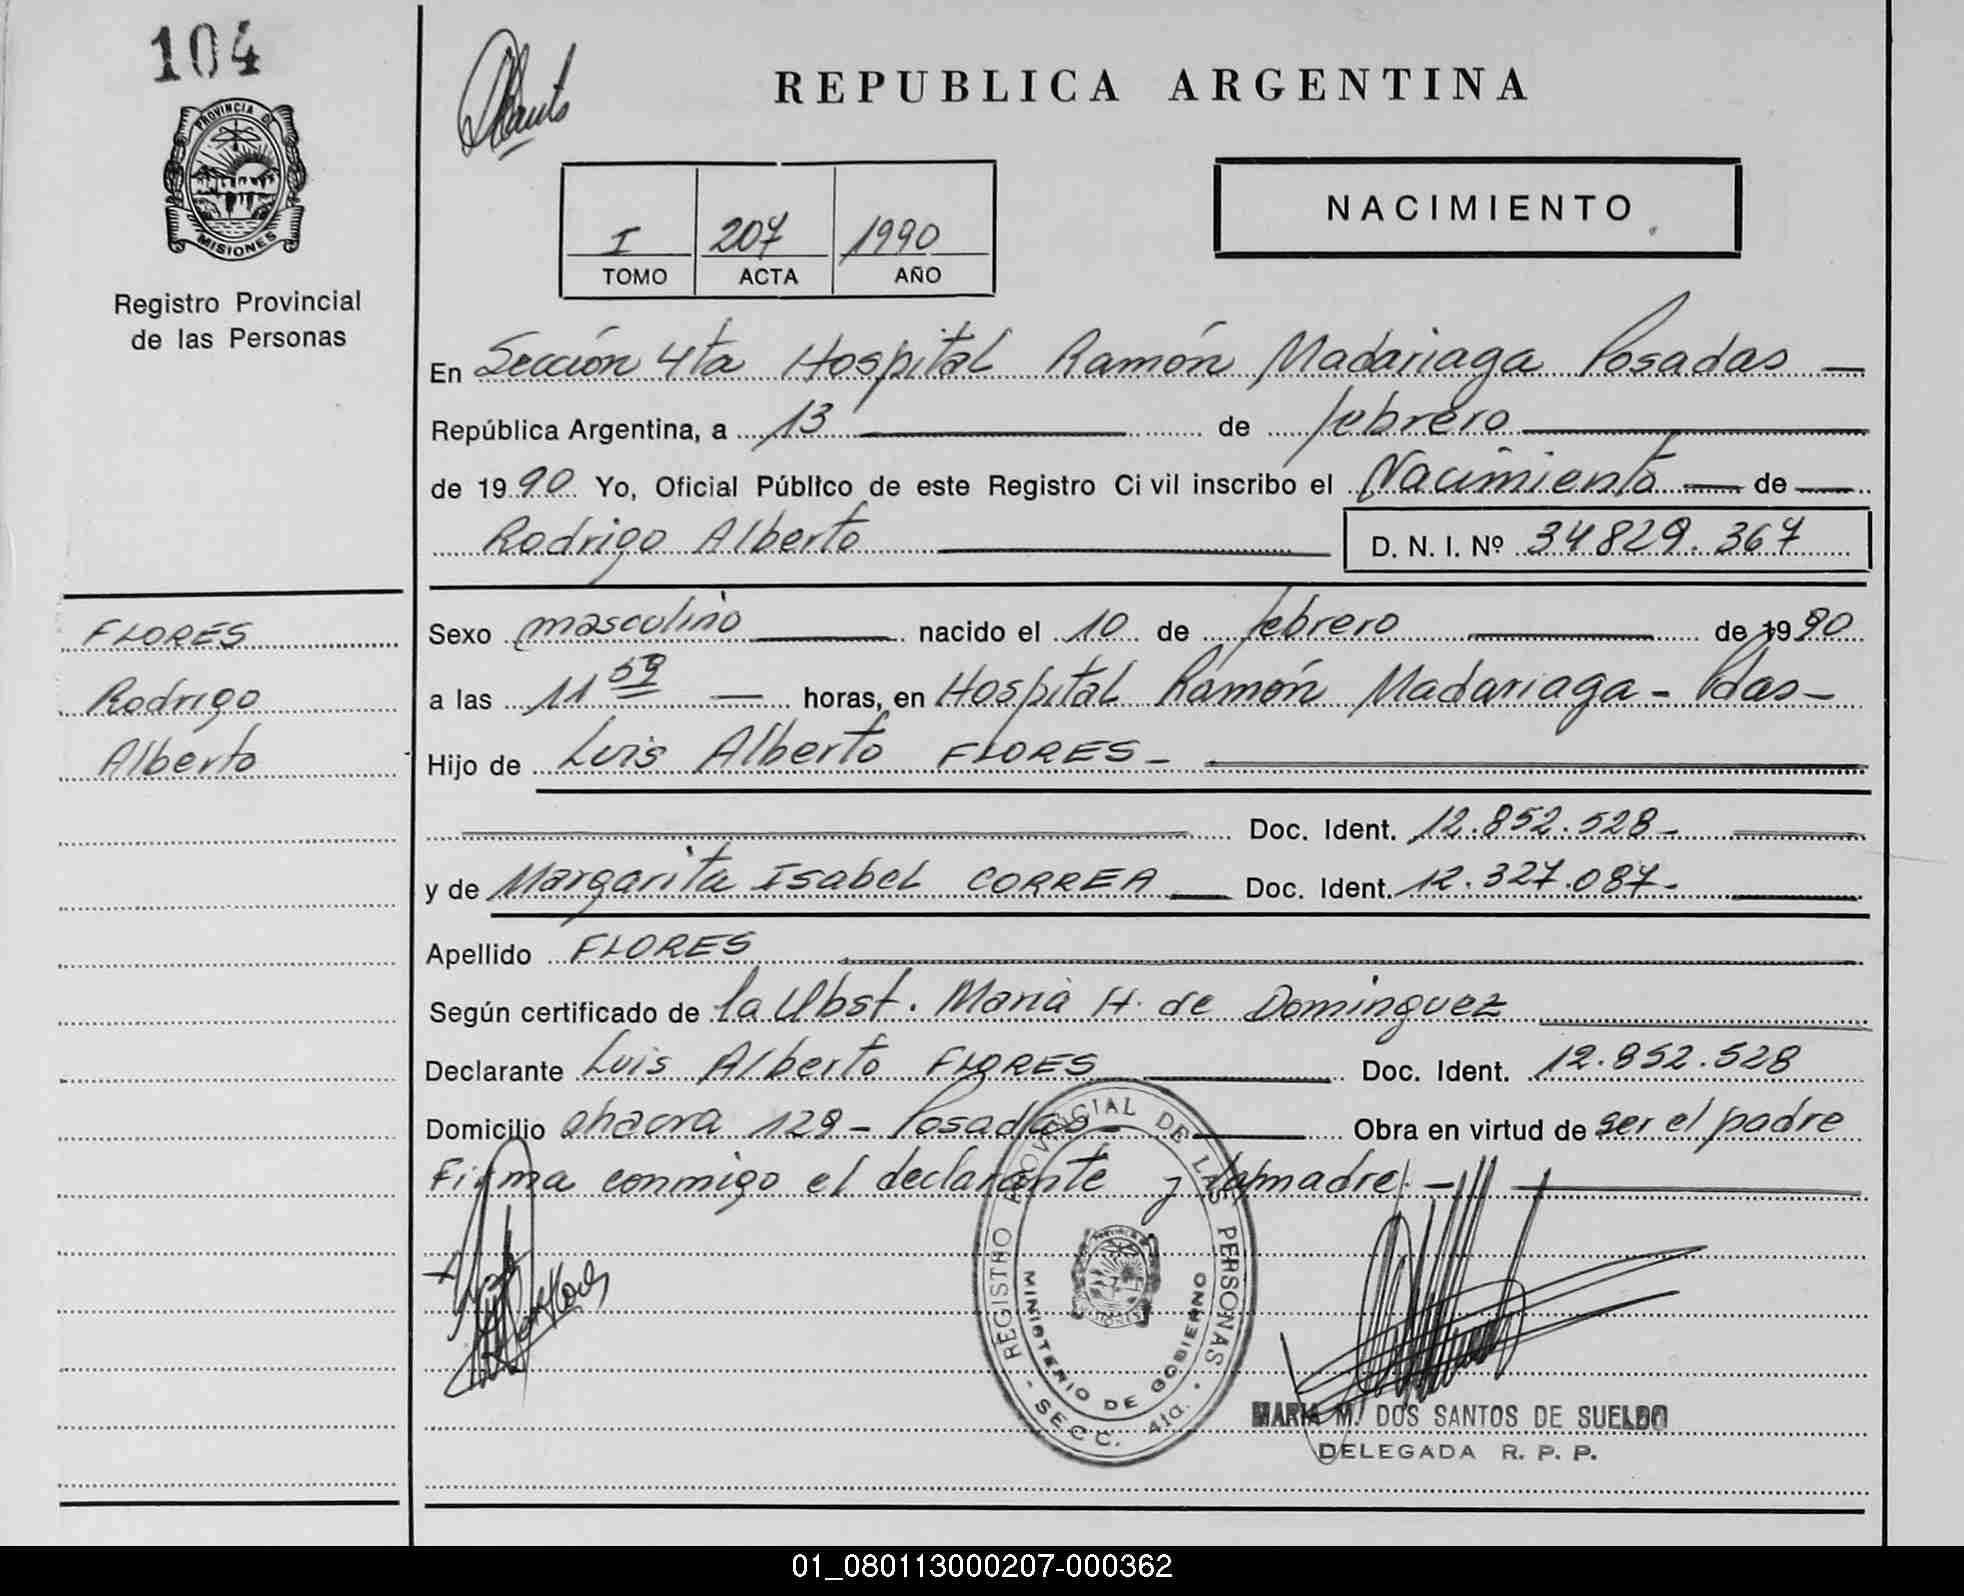 104
PROVINCIA DE
MISIONES
Registro Provincial
de las Personas
REPUBLICA ARGENTINA
I 207 1990
TOMO ACTA AÑO
NACIMIENTO
En Sección 4ta Hospital Ramón Madariaga Posadas —
República Argentina, a 13 de febrero
de 1990 Yo, Oficial Público de este Registro Civil inscribo el Nacimiento — de —
Rodrigo Alberto D. N. I. Nº 34829.367
FLORES
Rodrigo
Alberto
Sexo masculino nacido el 10 de febrero de 1990
a las 11 59 — horas, en Hospital Ramón Madariaga - Pdas -
Hijo de Luis Alberto FLORES -
Doc. Ident. 12.852.528 -
y de Margarita Isabel CORREA Doc. Ident. 12.327.087 -
Apellido FLORES
Según certificado de la Obst. María H. de Dominguez
Declarante Luis Alberto FLORES Doc. Ident. 12.852.528
Domicilio chacra 129 - Posadas - Obra en virtud de ser el padre
Firma conmigo el declarante y la madre. -
REGISTRO PROVINCIAL DE LAS PERSONAS
MINISTERIO DE GOBIERNO
- SECC. 4ta. -
MARIA M. DOS SANTOS DE SUELDO
DELEGADA R. P. P.
01_080113000207-000362